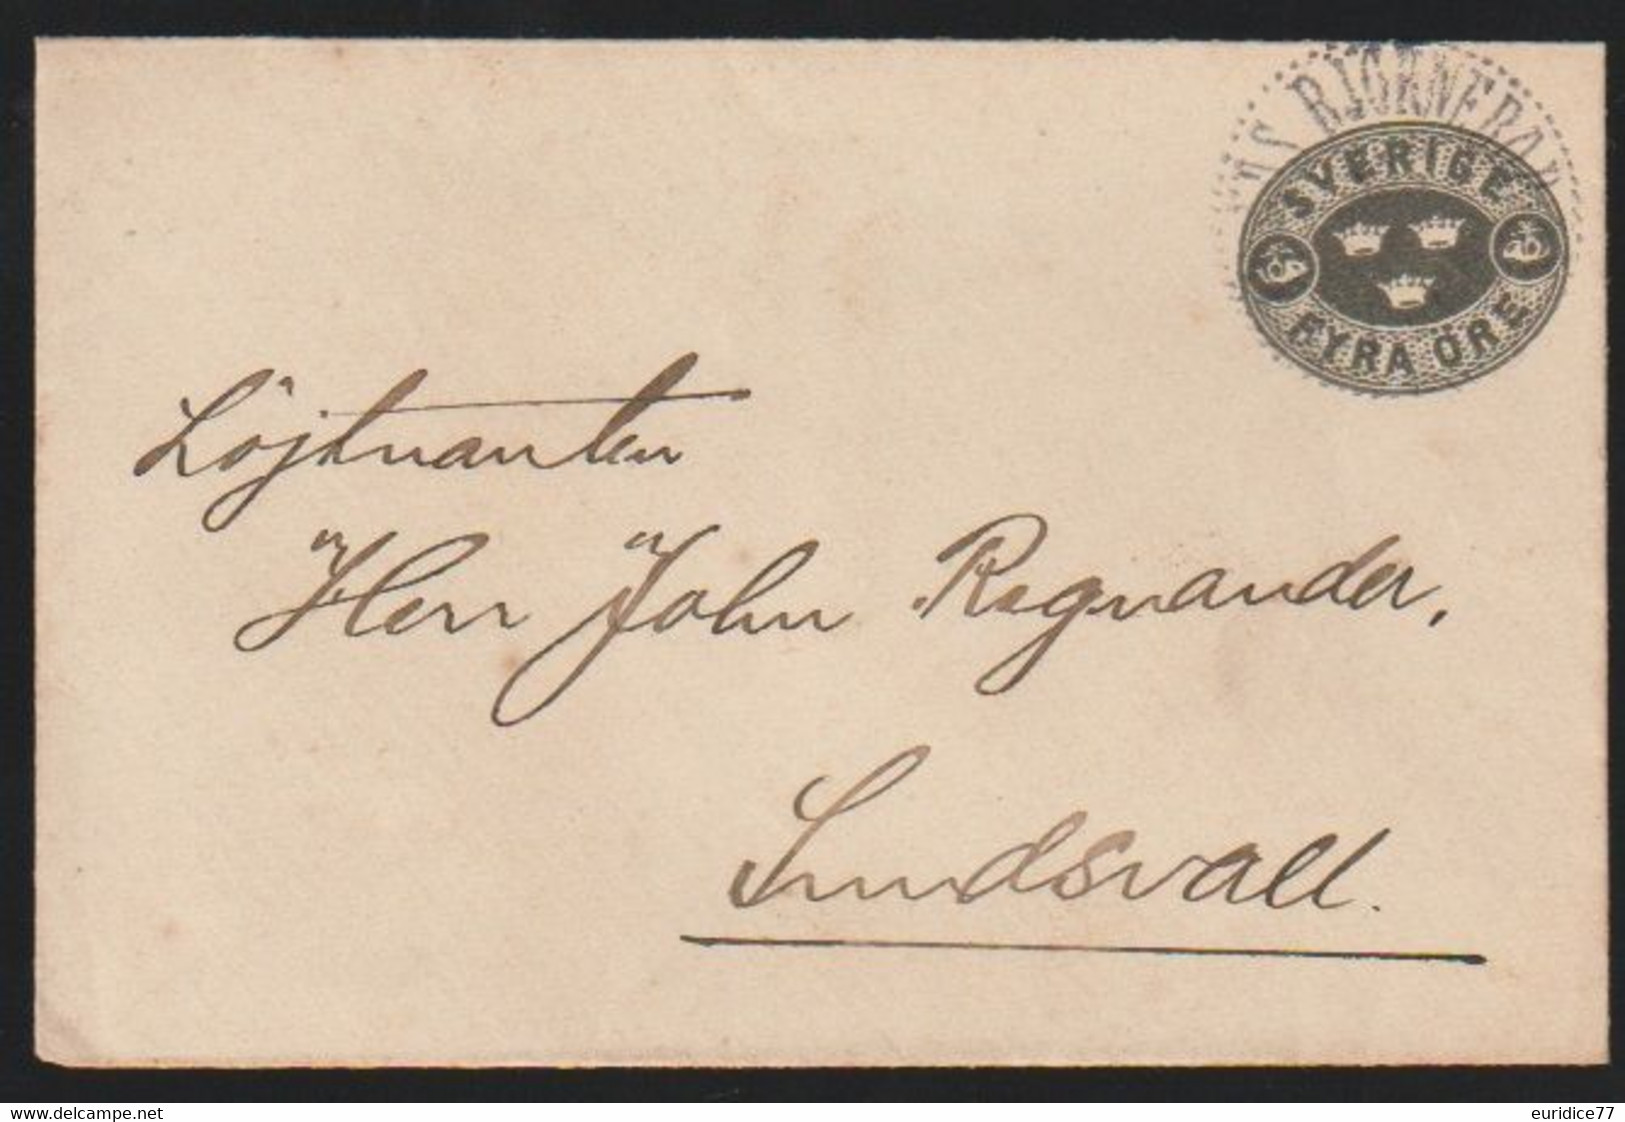 BJÖRNEBA
SVERIGE
FYRA ÖRE
Löjtnanten
Herr John Regnander,
Sundsvall.
www.delcampe.net
euridice77